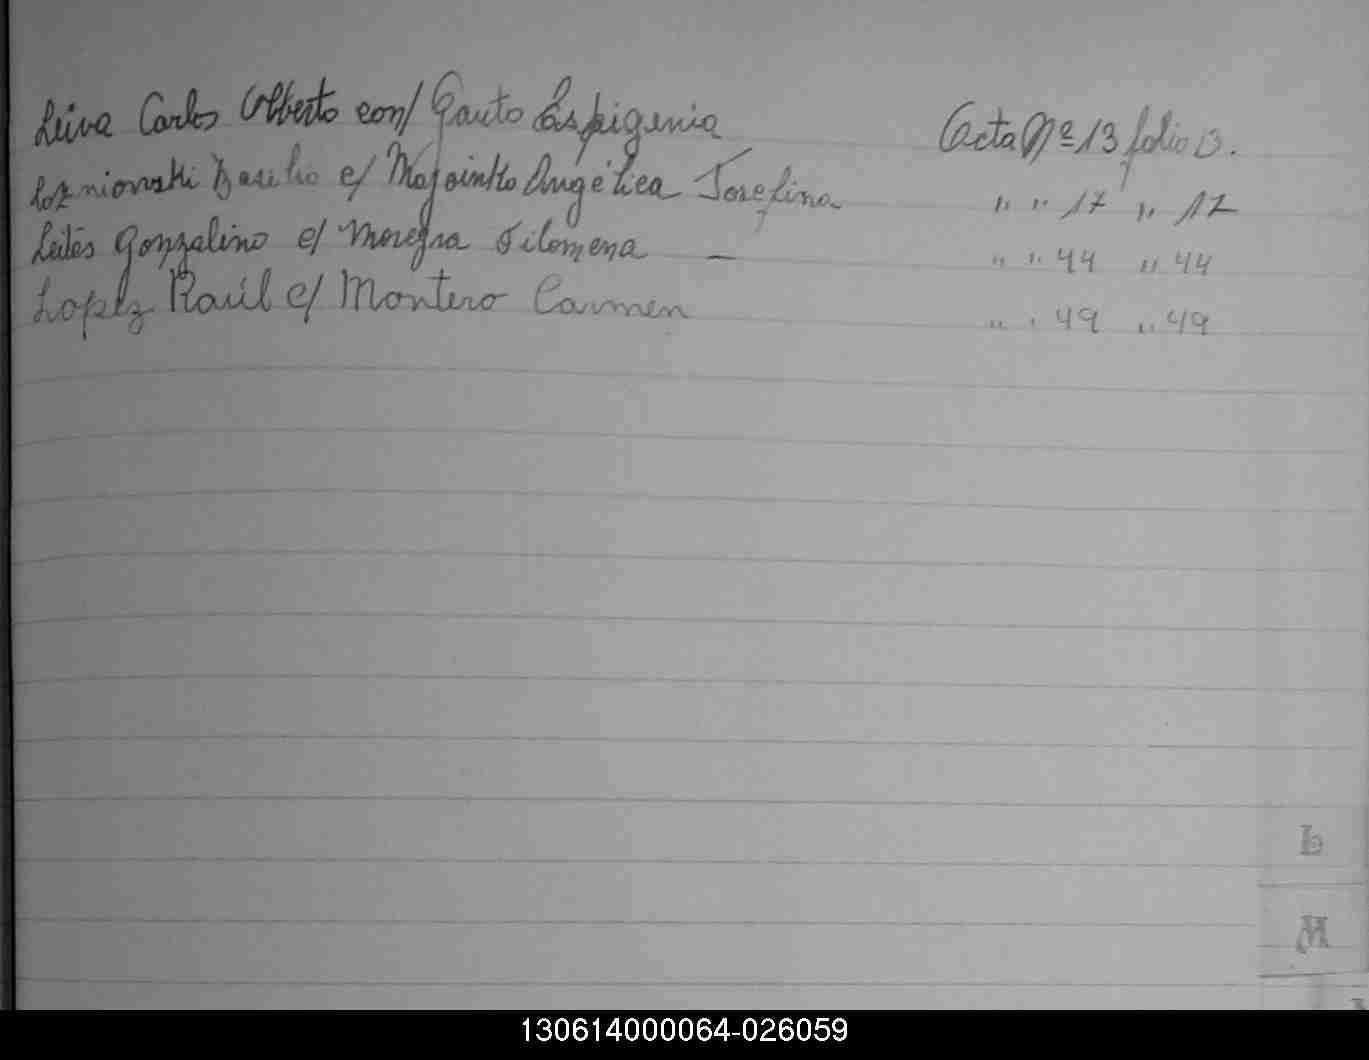 Leiva Carlos Alberto con/ Gauto Espigenia Acta Nº 13 folio 13.
Lozniowski Basilio c/ Angélica Josefina " " 17 " 17
Leites Gonzalino c/ Moreyra Filomena — " " 44 " 44
Lopez Raúl c/ Montero Carmen " " 49 " 49
L
M
130614000064-026059